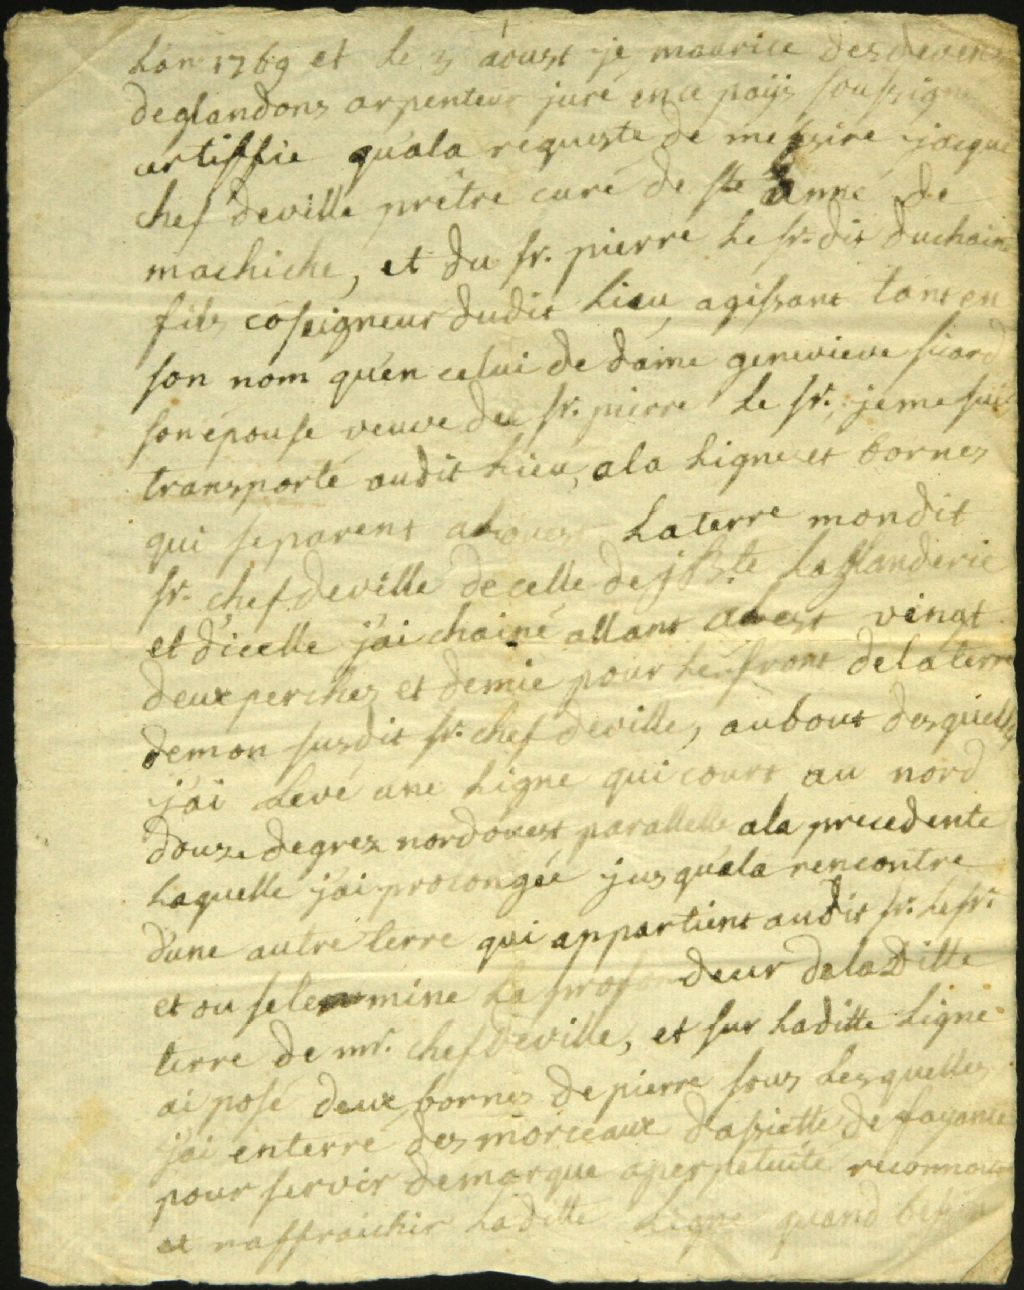 L'an 1769 et le 3 aoust je maurice desdevens
deglandons arpenteur juré en ce païs soussigné
certiffie qu'a la requeste de messire jacque
chef deville prêtre curé de ste anne de
machiche, et du sr. pierre le sr. dit duchaine
fils coseigneur dudit lieu, agissant tant en
son nom qu'en celui de dame genevieve sicard
son épouse veuve du sr. pierre le sr. je me suis
transporté audit lieu, a la ligne et bornes
qui separent a louest la terre mondit
sr. chef deville de celle de j Bte laflanderie
et d'icelle j'ai chainé allant a lest vingt
deux perches et demie pour le front de la terre
de mon susdit sr. chef deville, au bout desquelles
j'ai levé une ligne qui court au nord
douze degrez nordouest parallelle a la precedente
laquelle j'ai prolongée jusqu'a la rencontre
d'une autre terre qui appartient audit sr. le sr.
et ou se termine la profondeur de la ditte
terre de mr. chef deville, et sur laditte ligne
ai posé deux bornes de pierre sous lesquelles
j'ai enterré des morceaux d'assiette de fayance
pour servir de marque a perpetuité reconnoitre
et raffraichir laditte ligne quand besoin